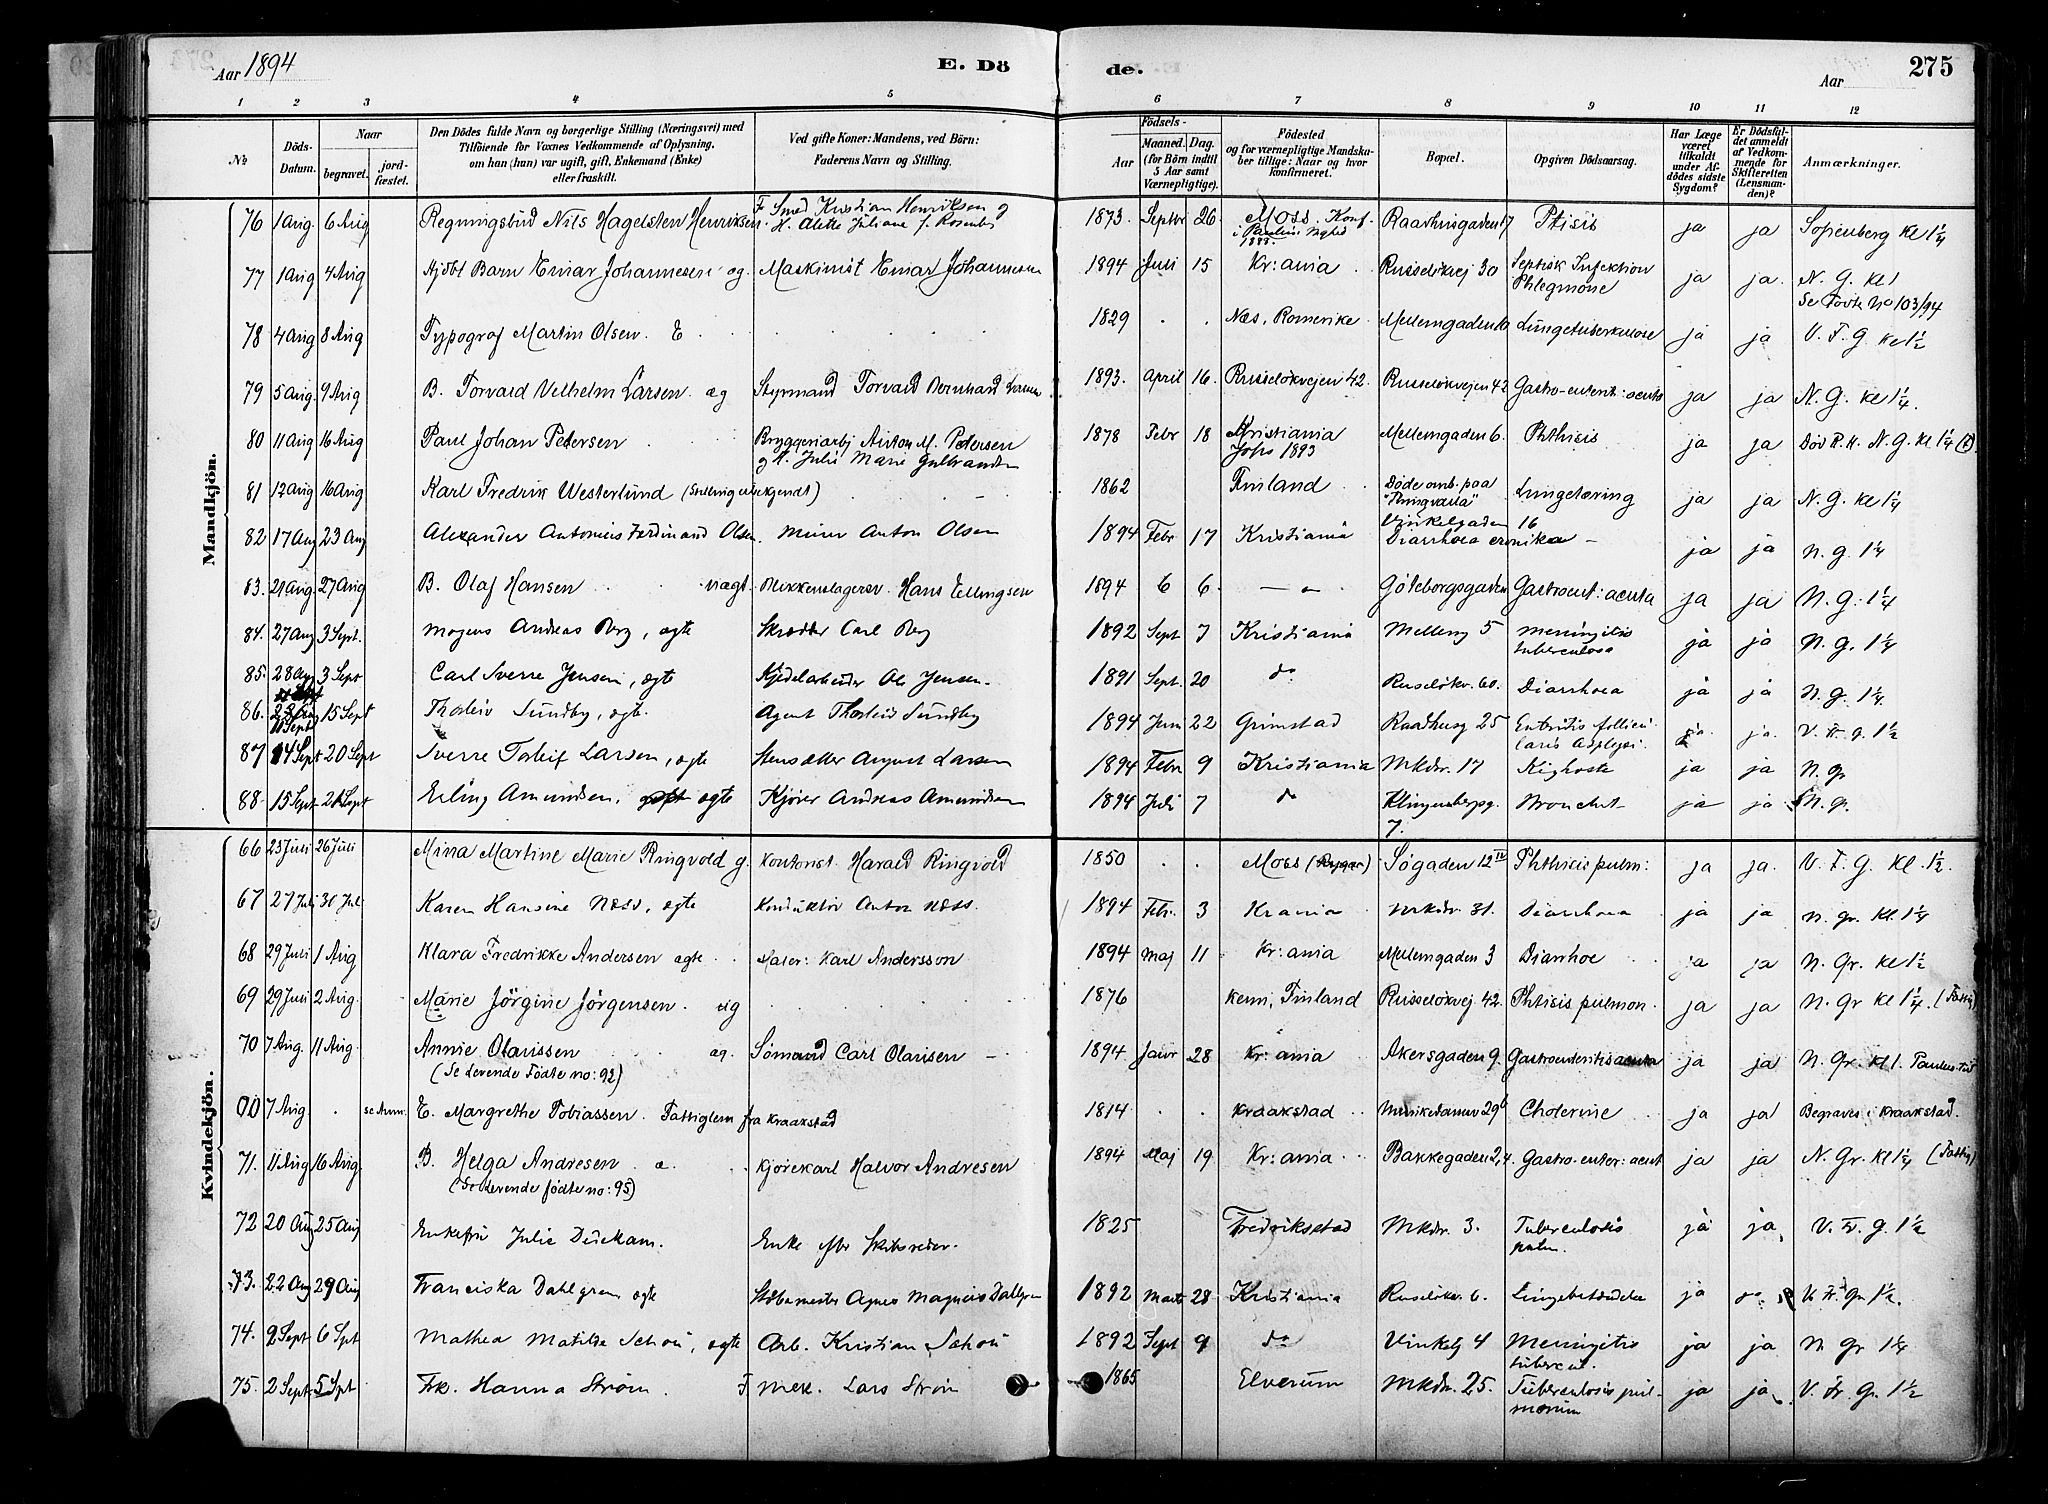 Aar 1894
E. Dö
de.
Aar
275
1 2 3 4 5 6 7 8 9 10 11 12
No
Döds-Datum.
Naar
begravet.
jordfæstet.
Den Dödes fulde Navn og borgerlige Stilling (Næringsvei) med
Tilföiende for Voxnes Vedkommende af Oplysning,
om han (hun) var ugift, gift, Enkemand (Enke)
eller fraskilt.
Ved gifte Koner: Mandens, ved Börn:
Faderens Navn og Stilling.
Födsels-
Aar
Maaned. Dag.
(for Börn indtil
5 Aar samt
Værnepligtige).
Födested
og for værnepligtige Mandska-
ber tillige: Naar og hvor
konfirmeret.
Bopæl.
Opgiven Dödsaarsag.
Har Læge
været
tilkaldt
under Af-
dödes sidste
Sygdom?
Er Dödsful-
det anmeldt
af Vedkom-
mende for
Skifteretten
(Lensman-
den)?
Anmærkninger.
Mandkjön.
76 1 Aug. 6 Aug Regningsbud Nils Hagelsten Henriksen. F. Smed Kristian Henriksen og H. Alette Juliane f. Rosenbg 1873. Septbr 26 Moss. Konf. i Paulus Mghed Raadhusgaden 17 Ptisis ja ja Sofienberg Kl 1 1/4
77 1 Aug 4 Aug Hjdbt Barn Einar Johannesen æg. Maskinist Einar Johannesen 1894 Juli 15 Kr:ania Russeløkvej 30 Septisk Infektion Phlegmone ja ja. N. G. Kl 1 Se Fødte No 103/94
78 4 Aug 8 Aug Typograf Martin Olsen. E 1829 Næs, Romerike Mellemgaden Lungetuberkulose ja ja V. F. G. Kl 1 1/2
79 5 Aug. 9 Aug B. Torvald Vilhelm Larsen. æg Styrmand Torvald Bernhard Larsen 1893. April 16. Russeløkvejen 42. Russeløkvejen 42 Gastro-enterit: acuta ja ja N. G. Kl 1 1/4.
80 11 Aug 16 Aug Paul Johan Petersen Bryggeriarbj Anton M. Petersen og H. Julie Marie Gulbrandsen 1878 Febr 18 Kristiania Jops 1893 Mellemgaden 6. Phthisis ja ja Död R. H. N. G. Kl 1 1/4
81 12 Aug 16 Aug Karl Fredrik Westerlund (Stilling ubekjendt) 1862 Finland Døde omb. paa "Ringvalla" Lungetæring ja ja N. G. Kl 1 1/4
82 17 Aug 23 Aug Alexander Antonius Ferdinand Olsen. Murer Anton Olsen 1894 Febr 17 Kristiania Vinkelgaden 16 Diarrhoea cronika – ja ja N. G. 1 1/4
83. 21 Aug. 27 Aug B. Olaf Hansen uægt. Blikkenslagersv. Hans Ellingsen 1894 6 6. — " — Göteborgsgaden Gastroent: acuta ja ja N. G: 1 1/4
84. 27 Aug 3 Sept. Mogens Andreas Berg, ægte Skrædder Carl Berg 1892 Sept 7 Kristiania Mellemg 5 Meningitis tuberculosa ja ja N. G. 1 1/4
85. 28 Aug 3 Sept Carl Sverre Jensen, ægte Kjedelarbeider Ole Jensen. 1891 Sept. 20 do Ruseløkv. 60. Diarrhoea ja ja N. G. 1 1/4.
86. 11 Sept 15 Sept Thorleiv Sundby, ægte. Agent Thorleiv Sundby 1894 Juni 22 Grimstad Raadhusg 25 Enteritis follicularis ja. ja. V. Fr. G. 1 1/2
87 14 Sept 20 Sept Sverre Torleif Larsen, ægte Stensætter August Larsen 1894 Febr 9 Kristiania Mkdr. 17 Kighoste ja ja N. Gr
88. 15 Sept 21 Sept Erling Amundsen, ægte Kjører Andreas Amundsen 1894 Juli 7 do Klingenbergg. 7. Bronchit ja ja N. Gr.
Kvindekjön.
66 23 Juli 26 Juli Mina Martine Marie Ringvold g. Kontorist. Harald Ringvold 1850 Moss (Rygge) Søgaden 12 IV Phthisis pulm: ja ja. V. F. G. Kl. 1 1/2.
67 27 Juli 31 Jul Karen Hansine Næss, ægte Konduktör Anton Næss. 1894 Febr. 3 Krania Mkdr. 31. Diarrhoea ja ja N. Gr. Kl. 1 1/4
68 29 Juli 1 Aug Klara Fredrikke Andersen ægte. Maler: Karl Andersson 1894 Maj 11 Kr:ania Mellemgaden 3 Diarrhoe ja ja N. Gr. Kl 1 1/2
69 29 Juli 2 Aug. Marie Jörgine Jörgensen. ug 1876 Kemi, Finland Russeløkvej 42. Phtisis pulmon. ja ja N. Gr Kl 1 1/4. (Fattig)
70 7 Aug. 11 Aug. Annie Olarissen æg. Sømand Carl Olarisen – 1894 Janr 28 Kr:ania Akersgaden 9. Gastroenteritis acuta ja ja N. Gr. Kl 1. Paulus
(Se Levende Födte no: 92)
00 7 Aug. se Anm. E. Margrethe Tobiassen. Fattiglem fra Kraakstad 1814 Kraakstad Munkedamsv 29 b Cholerine ja ja Begraves i Kraakstad.
71. 11 Aug 16 Aug. B. Helga Andresen. æ. Kjørekarl Halvor Andresen 1894 Maj 19 Kr:ania Bakkegaden 2,4. Gastro-enter: acut ja ja N. Gr. Kl 1 1/4 (Fattig)
(Se Levende födte no: 95)
72 20 Aug 25 Aug Enkefru Julie Duckam. Enke efter Skibsreder. 1825 Fredriksstad Mkdr. 3. Tuberculosis pulm. ja ja V. Fr. G. 1 1/2
73. 22 Aug 29 Aug Franciska Dahlgren ægte Agnes Magnus Dahlgren 1892 Marts 28 Kristiania Ruseløkv. 6. Lungebetændelse ja do V. Fr. Gr. 1 1/2.
74. 2 Sept 6 Spt Mathea Matilde Schou, ægte Arb. Kristian Schou 1892 Sept 9 do Vinkelg 4 Meningitis tubercul. ja ja N Gr 1 1/4
75. 2 Sept. 5 Spt Frk. Hanna Strøm. F Mek. Lars Strøm 1865 Elverum Mkdr. 25. Tuberculosis pulmonum ja ja V. Fr. Gr. 1 1/2